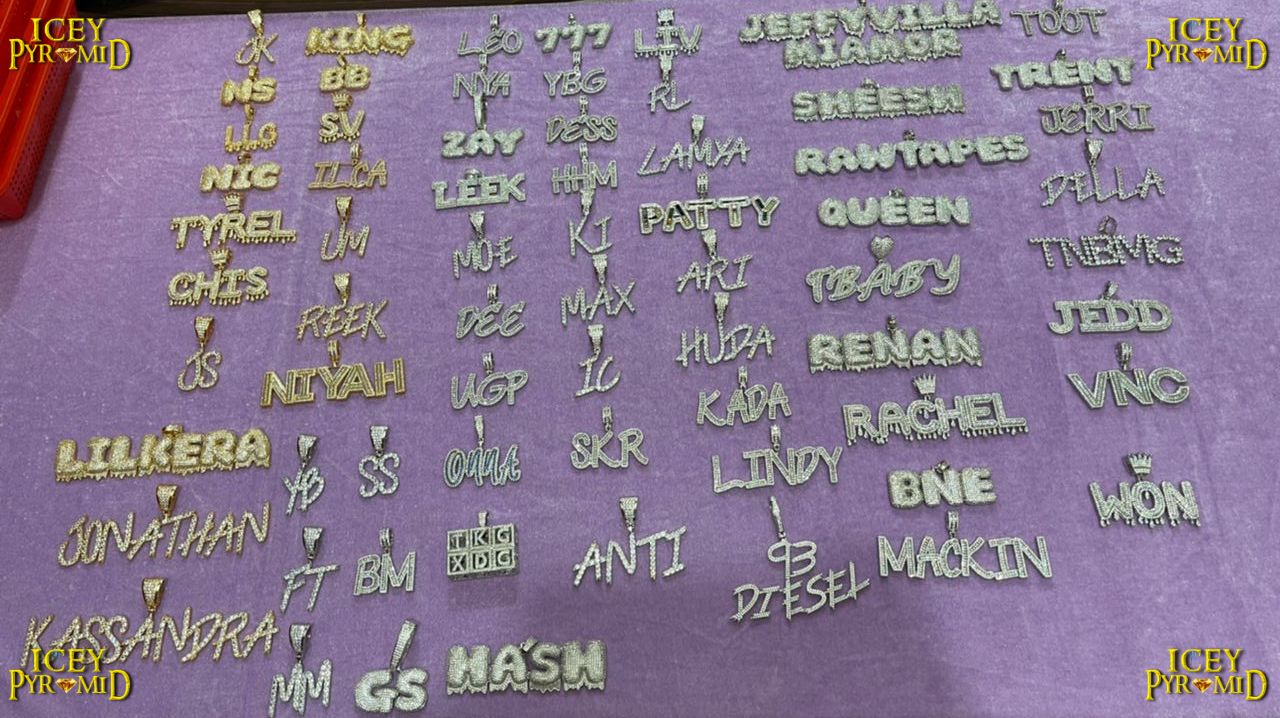 ICEY
PYRAMID
ICEY
PYRAMID
JK
KING
NS
BB
LLG
SV
NIC
ILCA
TYREL
UM
CHIS
REEK
JS
NIYAH
LILKERA
JONATHAN
KASSANDRA
YB
SS
FT
BM
MM
GS
LEO
777
LIV
NYA
YBG
RL
ZAY
DESS
LAMYA
LEEK
HHM
PATTY
MOE
KJ
ARI
DEE
MAX
HUDA
UGP
IC
KADA
SKR
LINDY
TKG
XDG
ANTI
93
DIESEL
MA$H
JEFFYVILLA
MIAMOR
TOOT
TRENT
SHEESH
JERRI
RAWTAPES
DELLA
QUEEN
TNBMG
TBABY
JEDD
RENAN
VNC
RACHEL
BNE
WON
MACKIN
ICEY
PYRAMID
ICEY
PYRAMID